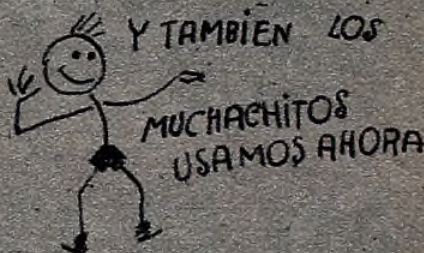 Y TAMBIEN LOS
MUCHACHITOS
USAMOS AHORA